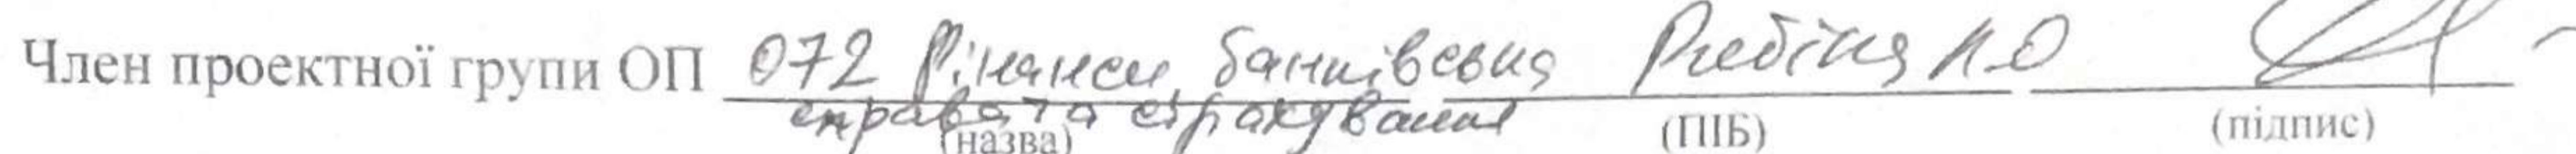 Член проектної групи ОП 072 Фінанси, банківська Н.О
справа та страхування
(назва) (ПІБ) (підпис)